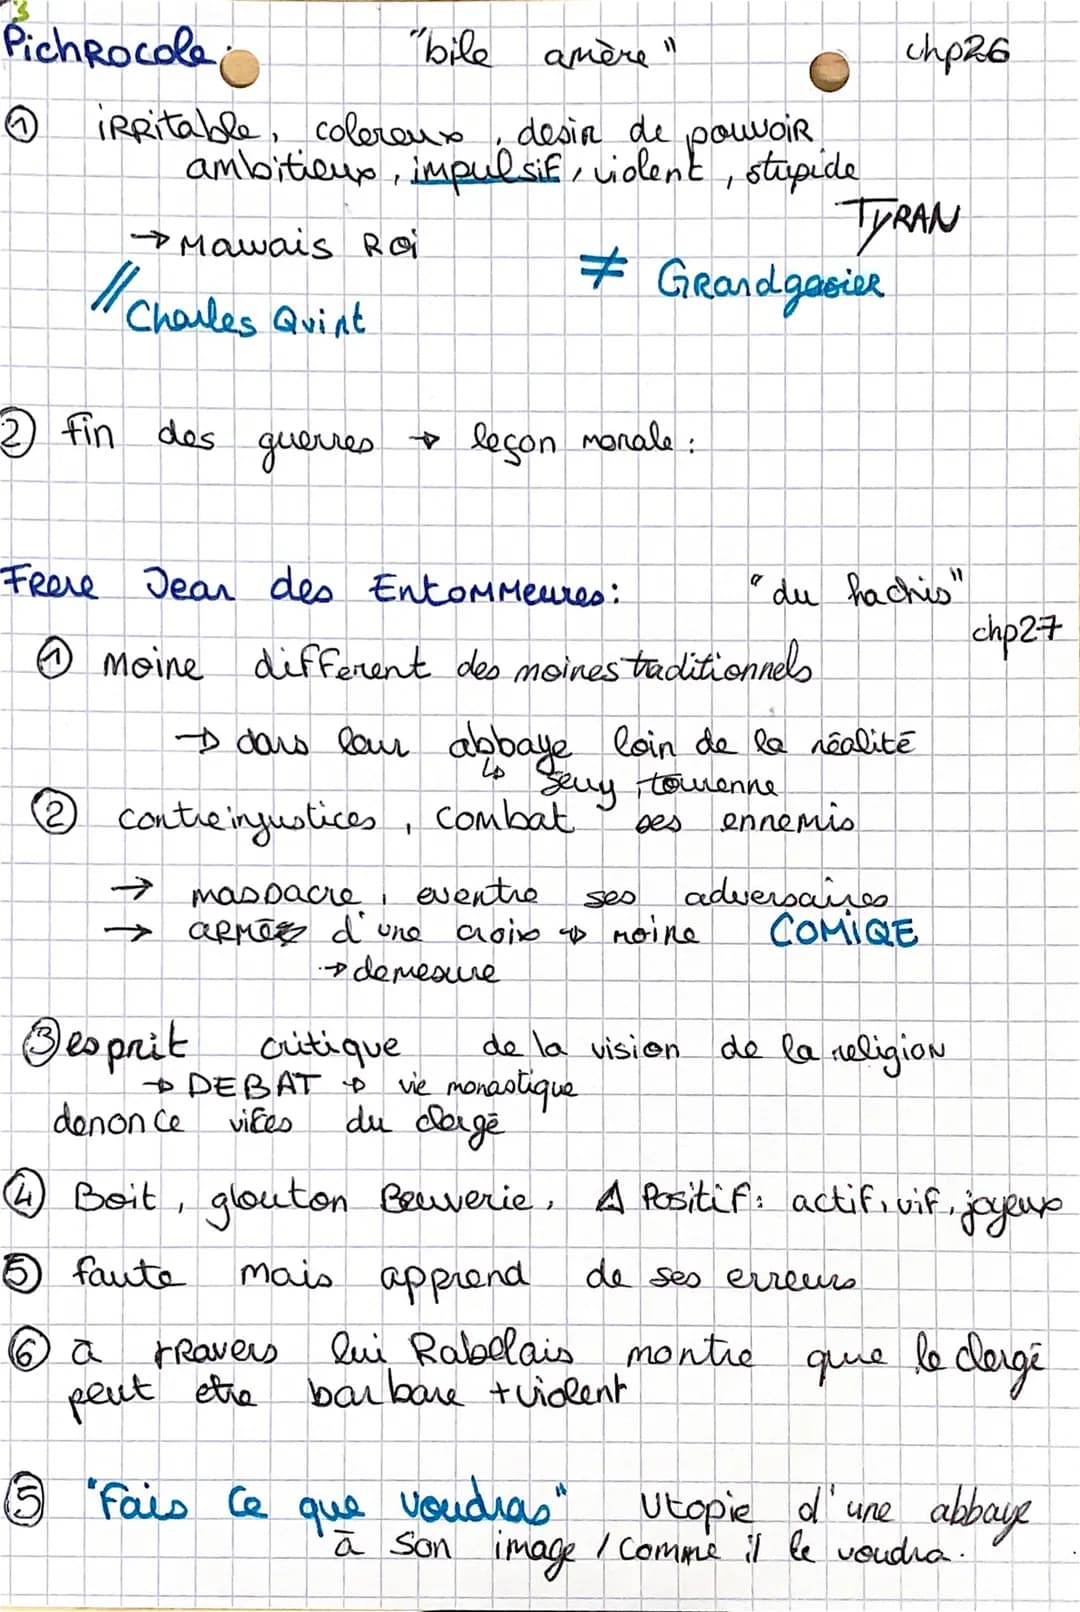 3
Pichrocole : "bile amère" chp26
① irritable, colereux, desir de pouvoir
ambitieux, impulsif, violent, stupide
TYRAN
→ Mauvais Roi
≠ Grandgosier
// Charles Quint
② fin des guerres → leçon morale :
Frere Jean des Entommeures : "du hachis"
chp27
① moine different des moines traditionnels
→ dans leur abbaye loin de la réalité
↳ Seuy, tourenne
② contre injustices, combat ses ennemis
→ massacre, eventre ses adversaires
→ armée d'une croix → moine COMIQE
→ demesure
③ esprit critique de la vision de la religion
→ DEBAT → vie monastique
denonce vices du clergé
④ Boit, glouton Beuverie, Δ Positif : actif, vif, joyeux
⑤ faute mais apprend de ses erreurs
⑥ à travers lui Rabelais montre que le clergé
peut etre barbare + violent
⑤ "Fais ce que voudras" Utopie d'une abbaye
à son image / comme il le voudra.